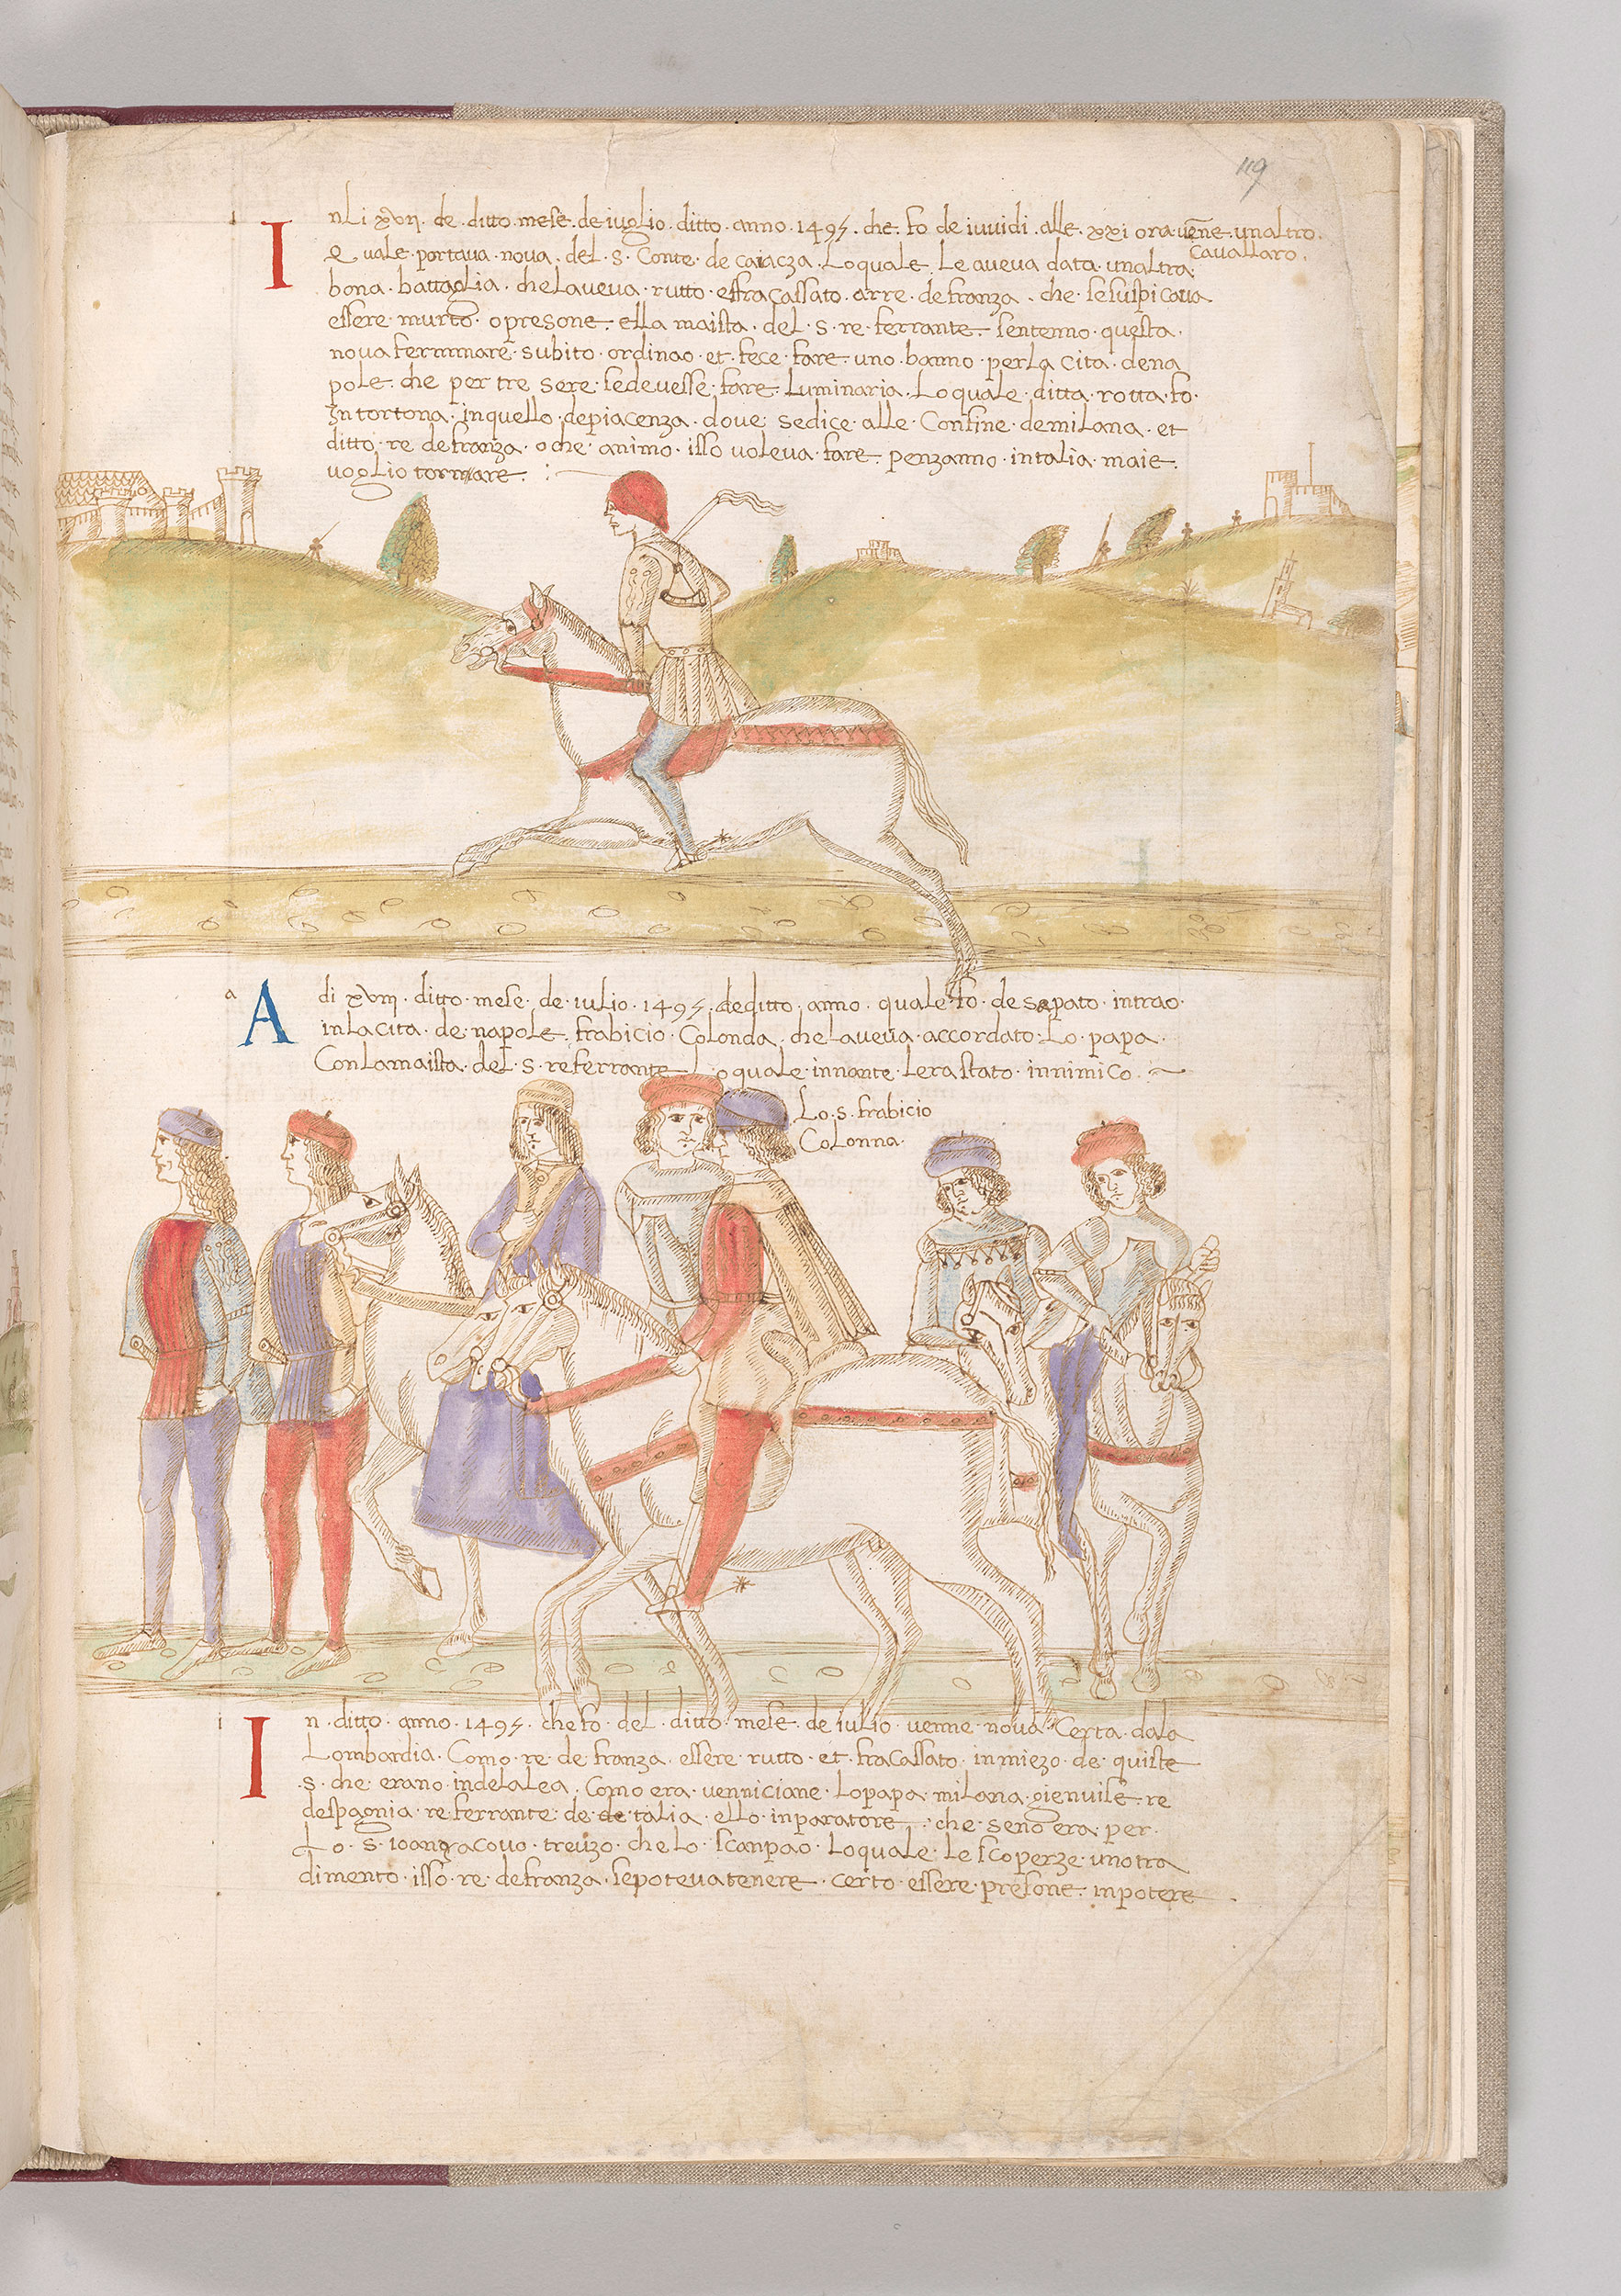 119
I nli xvii · de · ditto · mese · de iuglio · ditto · anno · 1495 · che · fo · de iuvidi · alle · xxi ora · vene · unaltro ·
cavallaro ·
Quale · portava · nova · del · s · Conte · de caiacza · Loquale · Le aveva data · unaltra ·
bona · battaglia · che laveva · rutto · effracassato · arre · de franza · che · se suspicava
essere · murto · o presone · ella maista · del · s · re · ferrante · sentenno · questa ·
nova fermmare · subito · ordinao · et · fece · fare · uno · banno · per la cita · dena
pole · che per tre sere · se devesse · fare · Luminaria · Loquale · ditta · rotta · fo ·
in tortona · in quello · depiacenza · dove · se dice · alle · Confine · de milana · et
ditto · re de franza · o che · animo · isso voleva · fare · penzanno · in talia · maie ·
voglio tornare · :
a
A di xviii · ditto · mese · de · iulio · 1495 · de ditto · anno · quale · fo · de sapato · intrao ·
in la cita · de · napole · frabicio · Colonda · che laveva · accordato · Lo · papa ·
Con la maista · del · s · re ferrante · Loquale · innante · lera stato · innimico ·
Lo · s · frabicio
Colonna ·
I n · ditto · anno · 1495 · che fo · del · ditto · mese · de iulio · venne · nova · Certa · dala
Lombardia · Como · re · de franza · essere · rutto · et · fracassato · in miezo · de · quiste
s · che · erano · in de la lea · Como era · venniciane · lo papa · milana · gienuise · re
despagnia · re ferrante · de · de talia · ello · inparatore · che · seno era · per ·
Lo · s · ioangiacovo · treuzo · che lo · scanpao · Loquale · le scoperze · uno tra
dimento · isso · re · de franza · se poteva tenere · certo · essere · presone · in potere ·